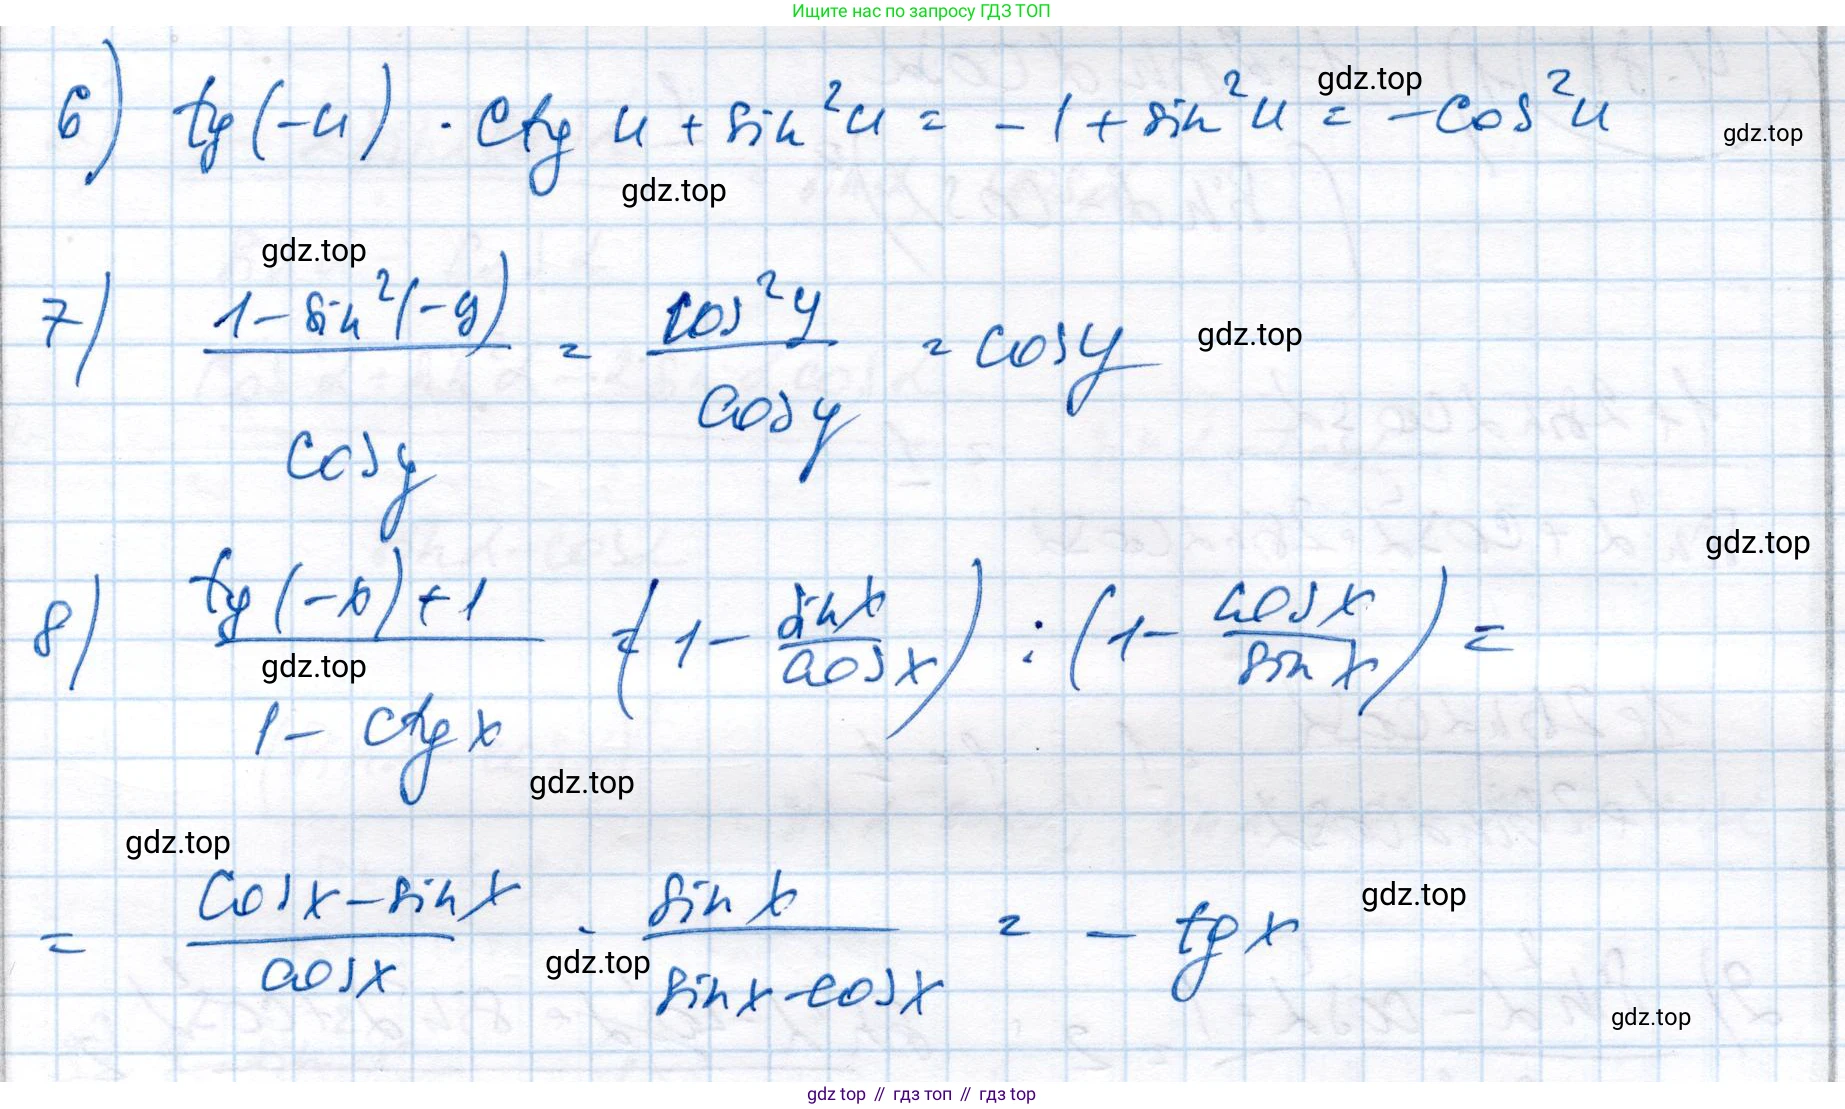 Ищите нас по запросу ГДЗ ТОП
6) tg(-u) · ctg u + sin²u = -1 + sin²u = -cos²u
gdz.top
gdz.top
gdz.top
gdz.top
7) (1 - sin²(-y)) / cos y = cos²y / cos y = cos y
gdz.top
gdz.top
8) (tg(-x) + 1) / (1 - ctg x) = (1 - sin x / cos x) : (1 - cos x / sin x) =
gdz.top
gdz.top
gdz.top
= (cos x - sin x) / cos x · sin x / (sin x - cos x) = - tg x
gdz.top
gdz.top
gdz.top
gdz top // гдз топ // gdz top